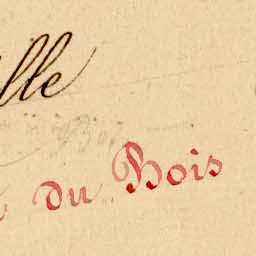 lle
du Bois